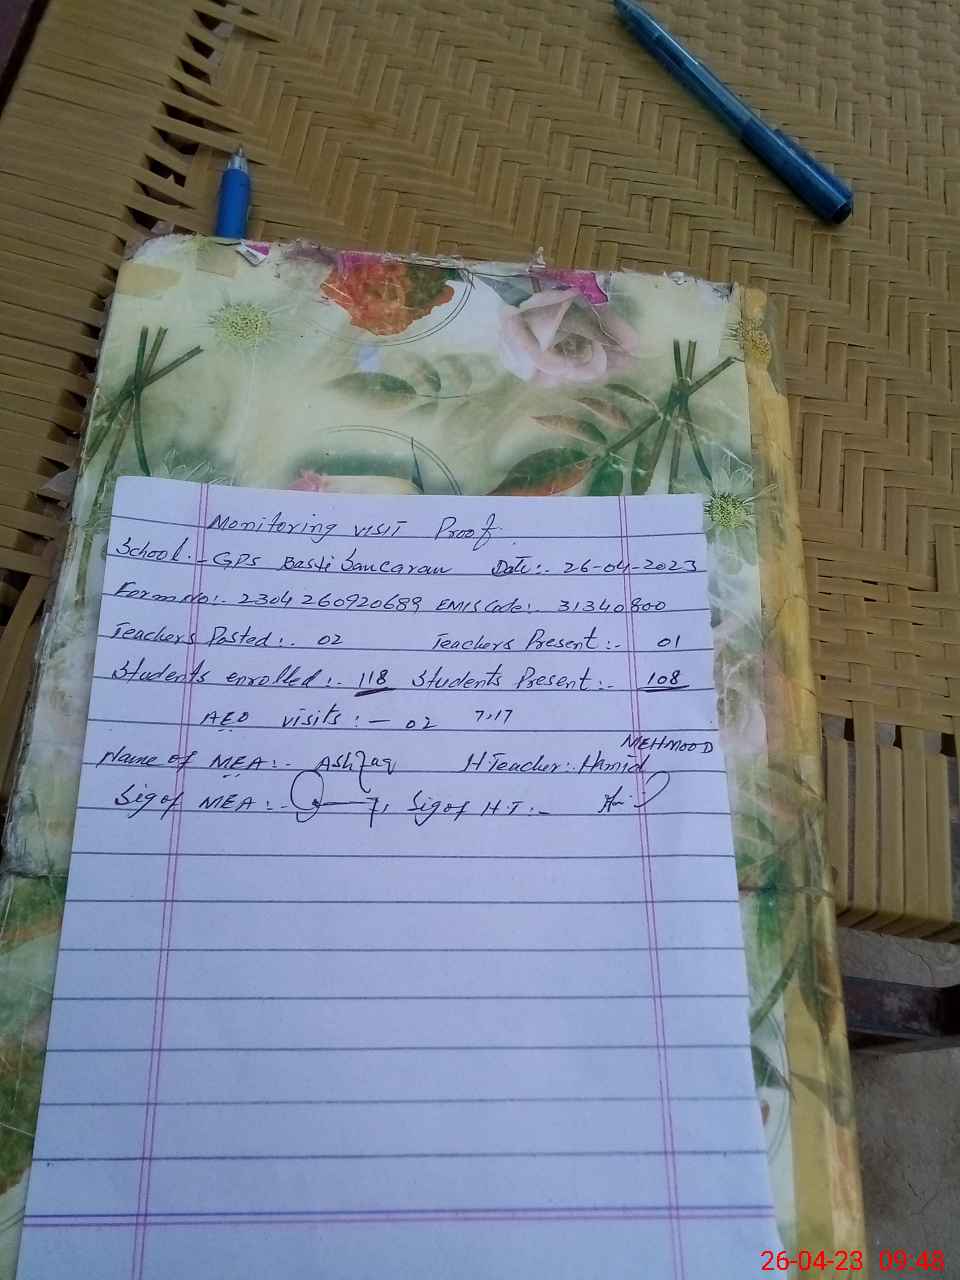 Monitoring visit Proof.
School:- GPS Basti Sancaran Date:- 26-04-2023
Form No:- 2304260920689 EMIS Code:- 31340800
Teachers Posted:- 02 Teachers Present:- 01
Students enrolled:- 118 Students Present:- 108
AEO visits:- 02 7,17
MEHMOOD
Name of MEA:- Ashfaq H Teacher:- Hamid
Sig of MEA:- Sig of H.T:-
26-04-23 09:48